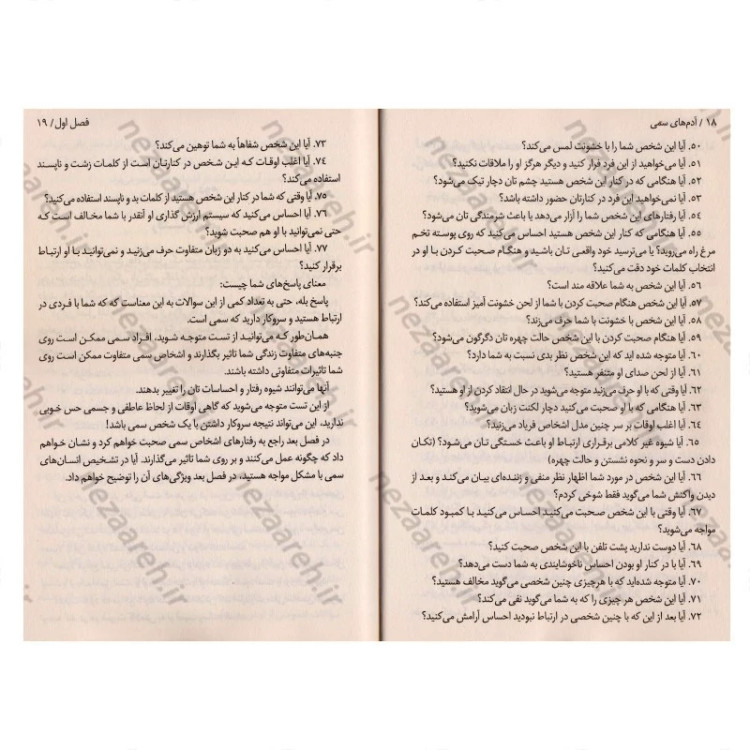 ۱۸ / آدم‌های سمی
۵۰. آیا این شخص شما را با خشونت لمس می‌کند؟
۵۱. آیا می‌خواهید از این فرد فرار کنید و دیگر هرگز او را ملاقات نکنید؟
۵۲. آیا هنگامی که در کنار این شخص هستید چشم تان دچار تیک می‌شود؟
۵۳. آیا نمی‌خواهید این فرد در کنارتان حضور داشته باشد؟
۵۴. آیا رفتارهای این شخص شما را آزار می‌دهد یا باعث شرمندگی تان می‌شود؟
۵۵. آیا هنگامی که کنار این شخص هستید احساس می‌کنید که روی پوسته تخم
مرغ راه می‌روید؟ یا می‌ترسید خود واقعی تان باشید و هنگام صحبت کردن با او در
انتخاب کلمات خود دقت می‌کنید؟
۵۶. آیا این شخص به شما علاقه مند است؟
۵۷. آیا این شخص هنگام صحبت کردن با شما از لحن خشونت آمیز استفاده می‌کند؟
۵۸. آیا این شخص با خشونت با شما حرف می‌زند؟
۵۹. آیا هنگام صحبت کردن با این شخص حالت چهره تان دگرگون می‌شود؟
۶۰. آیا متوجه شده اید که این شخص نظر بدی نسبت به شما دارد؟
۶۱. آیا از لحن صدای او متنفر هستید؟
۶۲. آیا وقتی که با او حرف می‌زنید متوجه می‌شوید در حال انتقاد کردن از او هستید؟
۶۳. آیا هنگامی که با او صحبت می‌کنید دچار لکنت زبان می‌شوید؟
۶۴. آیا اغلب اوقات بر سر چنین مدل اشخاص فریاد می‌زنید؟
۶۵. آیا شیوه غیر کلامی برقراری ارتباط او باعث خستگی تان می‌شود؟ (تکان
دادن دست و سر و نحوه نشستن و حالت چهره)
۶۶. آیا این شخص در مورد شما اظهار نظر منفی و زننده‌ای بیان می‌کند و بعد از
دیدن واکنش شما می‌گوید فقط شوخی کردم؟
۶۷. آیا وقتی با این شخص صحبت می‌کنید احساس می‌کنید با کمبود کلمات
مواجه می‌شوید؟
۶۸. آیا دوست ندارید پشت تلفن با این شخص صحبت کنید؟
۶۹. آیا با در کنار او بودن احساس ناخوشایندی به شما دست می‌دهد؟
۷۰. آیا متوجه شده‌اید که با هرچیزی چنین شخصی می‌گوید مخالف هستید؟
۷۱. آیا این شخص هر چیزی را که به شما می‌گوید نفی می‌کند؟
۷۲. آیا بعد از این که با چنین شخصی در ارتباط نبودید احساس آرامش می‌کنید؟
فصل اول / ۱۹
۷۳. آیا این شخص شفاهاً به شما توهین می‌کند؟
۷۴. آیا اغلب اوقات که این شخص در کنارتان است از کلمات زشت و ناپسند
استفاده می‌کند؟
۷۵. آیا وقتی که شما در کنار این شخص هستید از کلمات بد و ناپسند استفاده می‌کنید؟
۷۶. آیا احساس می‌کنید که سیستم ارزش گذاری او آنقدر با شما مخالف است که
حتی نمی‌توانید با او هم صحبت شوید؟
۷۷. آیا احساس می‌کنید به دو زبان متفاوت حرف می‌زنید و نمی‌توانید با او ارتباط
برقرار کنید؟
معنای پاسخ‌های شما چیست:
پاسخ بله، حتی به تعداد کمی از این سوالات به این معناست که که شما با فردی در
ارتباط هستید و سروکار دارید که سمی است.
همان‌طور که می‌توانید از تست متوجه شوید، افراد سمی ممکن است روی
جنبه‌های متفاوت زندگی شما تاثیر بگذارند و اشخاص سمی متفاوت ممکن است روی
شما تاثیرات متفاوتی داشته باشند.
آنها می‌توانند شیوه رفتار و احساسات تان را تغییر بدهند.
از این تست متوجه می‌شوید که گاهی اوقات از لحاظ عاطفی و جسمی حس خوبی
ندارید، این می‌تواند نتیجه سروکار داشتن با یک شخص سمی باشد!
در فصل بعد راجع به رفتارهای اشخاص سمی صحبت خواهم کرد و نشان خواهم
داد که چگونه عمل می‌کنند و بر روی شما تاثیر می‌گذارند. آیا در تشخیص انسان‌های
سمی با مشکل مواجه هستید، در فصل بعد ویژگی‌های آن را توضیح خواهم داد.
nezaareh.ir
nezaareh.ir
nezaareh.ir
nezaareh.ir